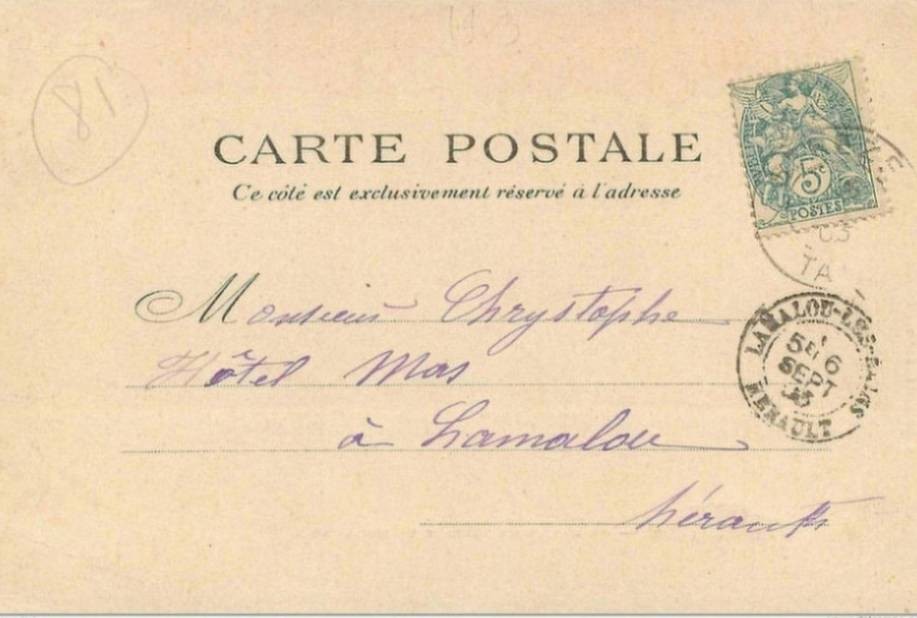 81
CARTE POSTALE
Ce côté est exclusivement réservé à l'adresse
5c
POSTES
03
TA
Monsieur Chrystophe
Hôtel Mas
à Lamalou
hérault
LAMALOU-LES-BAINS
6
SEPT
HERAULT